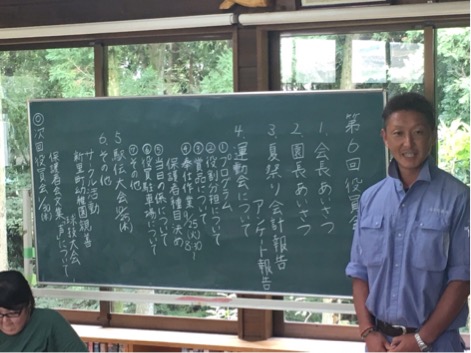 第6回役員会
1.会長あいさつ
2.園長あいさつ
3.夏祭り会計報告
アンケト報告
4.運動会について
①プログラム
②役割分担について
③賞品について
④奉仕作業
保護者種目決め
⑤当日の係について
⑥役員駐車場について
⑦その他
5.駅伝大会
6.その他
サークル活動
新里幼稚園親善
球技大会
保護者会文集
について
次回役員会